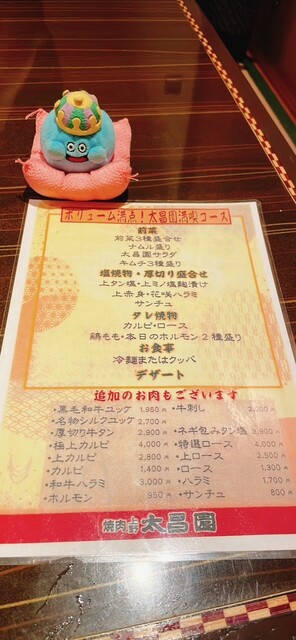 ボリューム満点！太昌園満喫コース
前菜
前菜3種盛合せ
ナムル盛り
太昌園サラダ
キムチ3種盛り
塩焼物・厚切り盛合せ
上タン塩・上ミノ塩麹漬け
上赤身・花咲ハラミ
サンチュ
タレ焼物
カルビ・ロース
鶏もも・本日のホルモン2種盛り
お食事
冷麺またはクッパ
デザート
追加のお肉もございます
・黒毛和牛ユッケ 1,950円 ・牛刺し 2,000円
・名物シルクユッケ 2,700円
・厚切り牛タン 2,900円 ・ネギ包みタン塩 3,900円
・極上カルビ 4,000円 ・特選ロース 4,000円
・上カルビ 2,800円 ・上ロース 2,500円
・カルビ 1,400円 ・ロース 1,300円
・和牛ハラミ 3,000円 ・ハラミ 1,700円
・ホルモン 950円 ・サンチュ 800円
焼肉 上野 太昌園